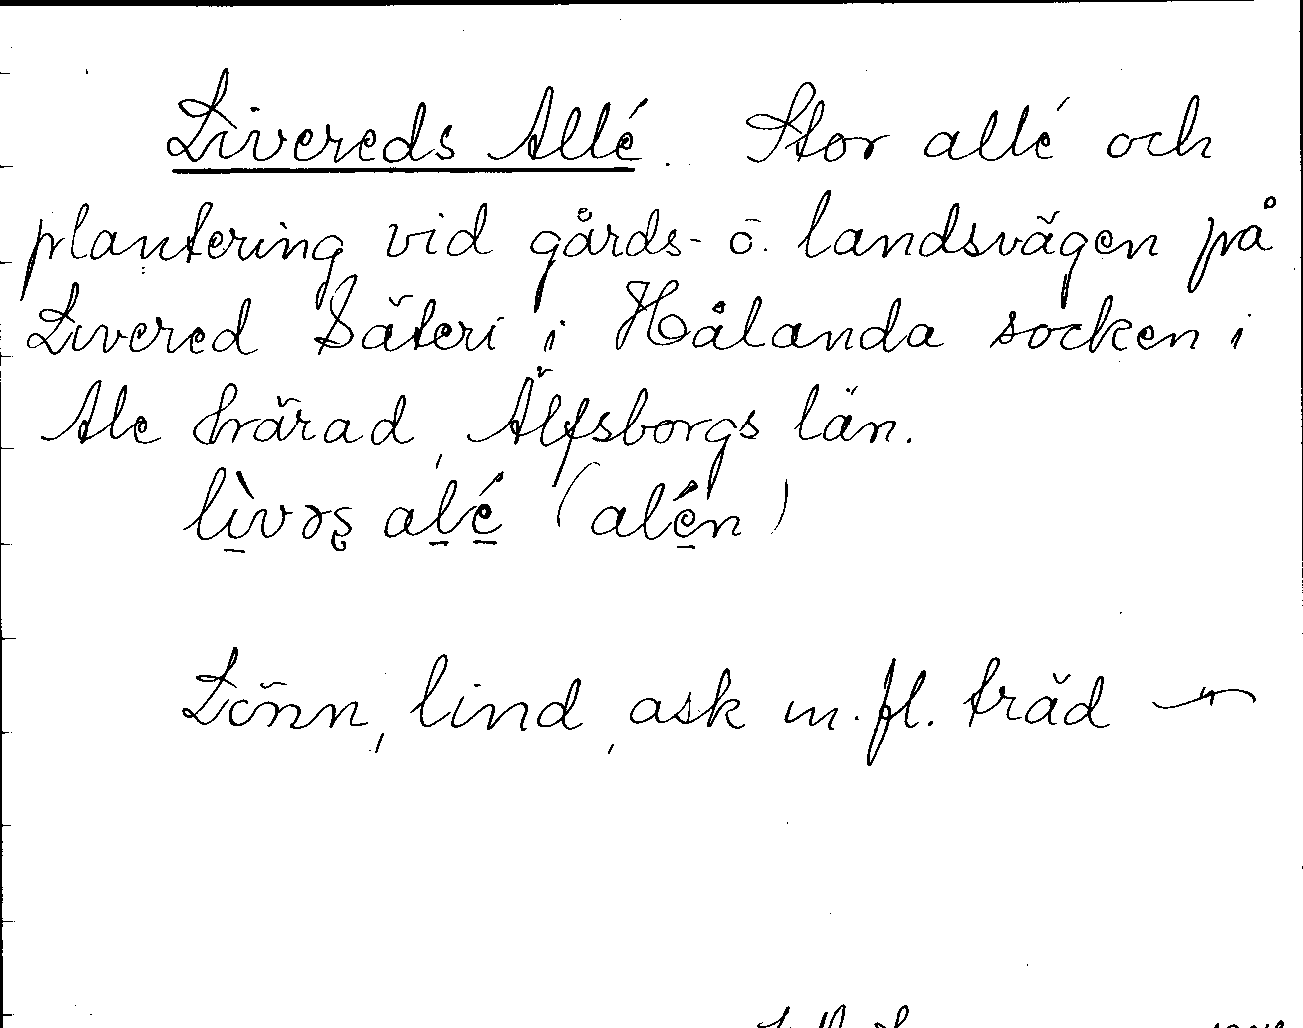 Livereds Allé. Stor allé och
plantering vid gårds- o. landsvägen på
Livered Säteri i Hålanda socken i
Ale härad, Älfsborgs län.
lìvəş alé (alén)
Lönn, lind, ask m. fl. träd